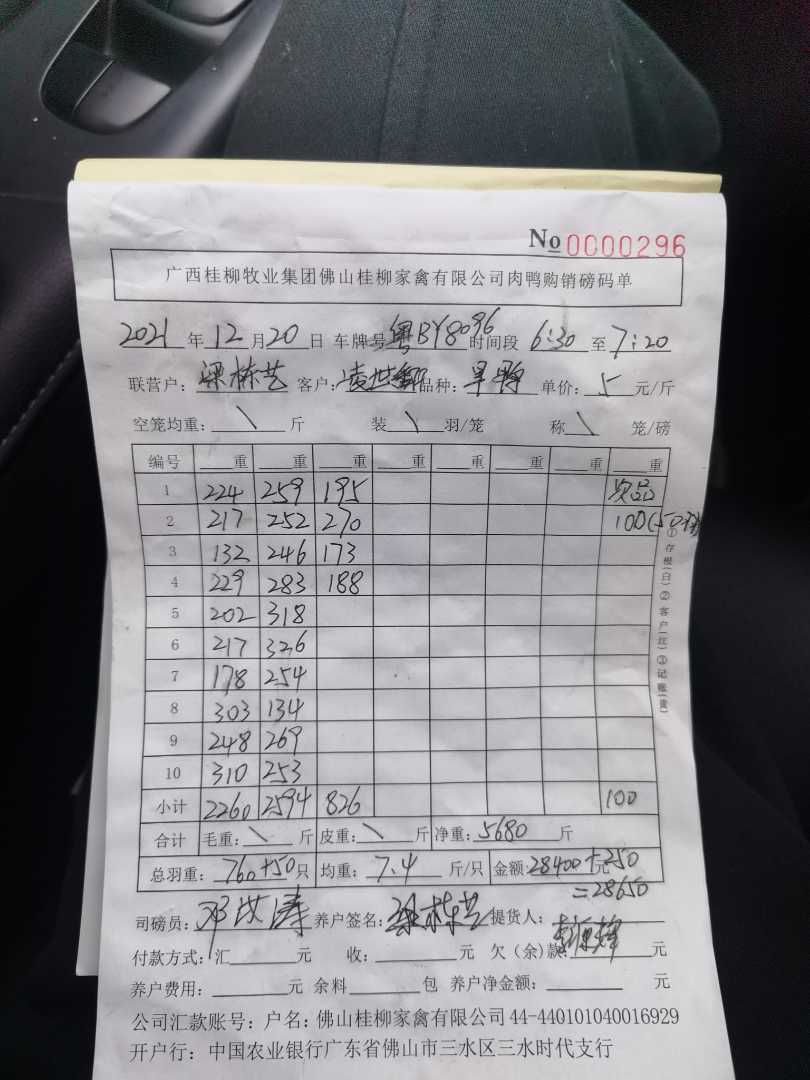 No 0000296
广西桂柳牧业集团佛山桂柳家禽有限公司肉鸭购销磅码单
2021 年 12 月 20 日 车牌号 粤BY8096 时间段 6:30 至 7:20
联营户: 梁栋艺 客户: 凌世 品种: 旱鸭 单价: 5 元/斤
空笼均重: \ 斤 装 \ 羽/笼 称 \ 笼/磅
编号 重 重 重 重 重 重 重 重
1 224 259 195 次品
2 217 252 270 100(50
3 132 246 173
4 229 283 188
5 202 318
6 217 326
7 178 254
8 303 134
9 248 269
10 310 253
小计 2260 2594 826 100
合计 毛重: \ 斤 皮重: \ 斤 净重: 5680 斤
总羽重: 760+50 只 均重: 7.4 斤/只 金额: 28400+250 元
=28650
司磅员: 邓 涛 养户签名: 梁栋艺 提货人:
付款方式: 汇 元 收: 元 欠(余)款: 元
养户费用: 元 余料 包 养户净金额: 元
公司汇款账号: 户名: 佛山桂柳家禽有限公司 44-440101040016929
开户行: 中国农业银行广东省佛山市三水区三水时代支行
①存根(白)②客户(红)③记账(黄)